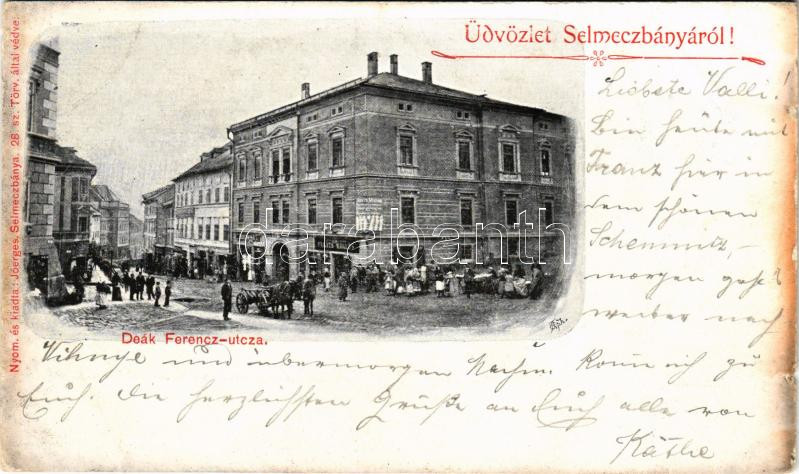 Üdvözlet Selmeczbányáról!
Nyom. és kiadta: Joerges. Selmeczbánya. 28 sz. Törv. által védve.
Deák Ferencz-utcza.
darabanth.com
Liebste Valli!
Bin heute mit
Franz hier in
dem schönen
Schemnitz,
morgen geht's
weiter nach
Vihnye und übermorgen Nachm. komm ich zu
Euch. Die herzlichsten Grüße an Euch alle von
Käthe